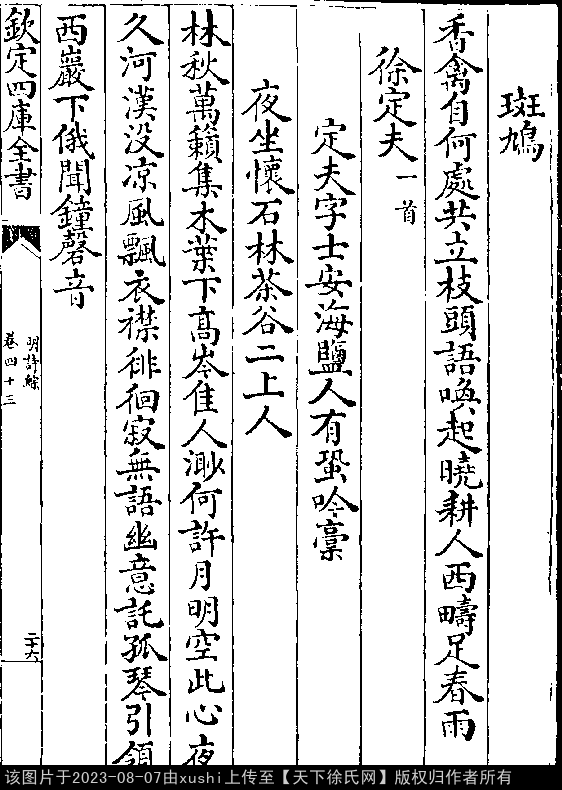 斑鳩
香禽自何處共立枝頭語喚起曉耕人西疇足春雨
徐定夫一首
定夫字士安海鹽人有蛩吟稾
夜坐懷石林茶谷二上人
林秋萬籟集木葉下髙岑隹人渺何許月明空此心夜
久河漢没凉風飄衣襟徘徊寂無語幽意託孤琴引領
西巖下俄聞鐘磬音
欽定四庫全書
明詩綜
卷四十三
二十六
该图片于2023-08-07由xushi上传至【天下徐氏网】版权归作者所有